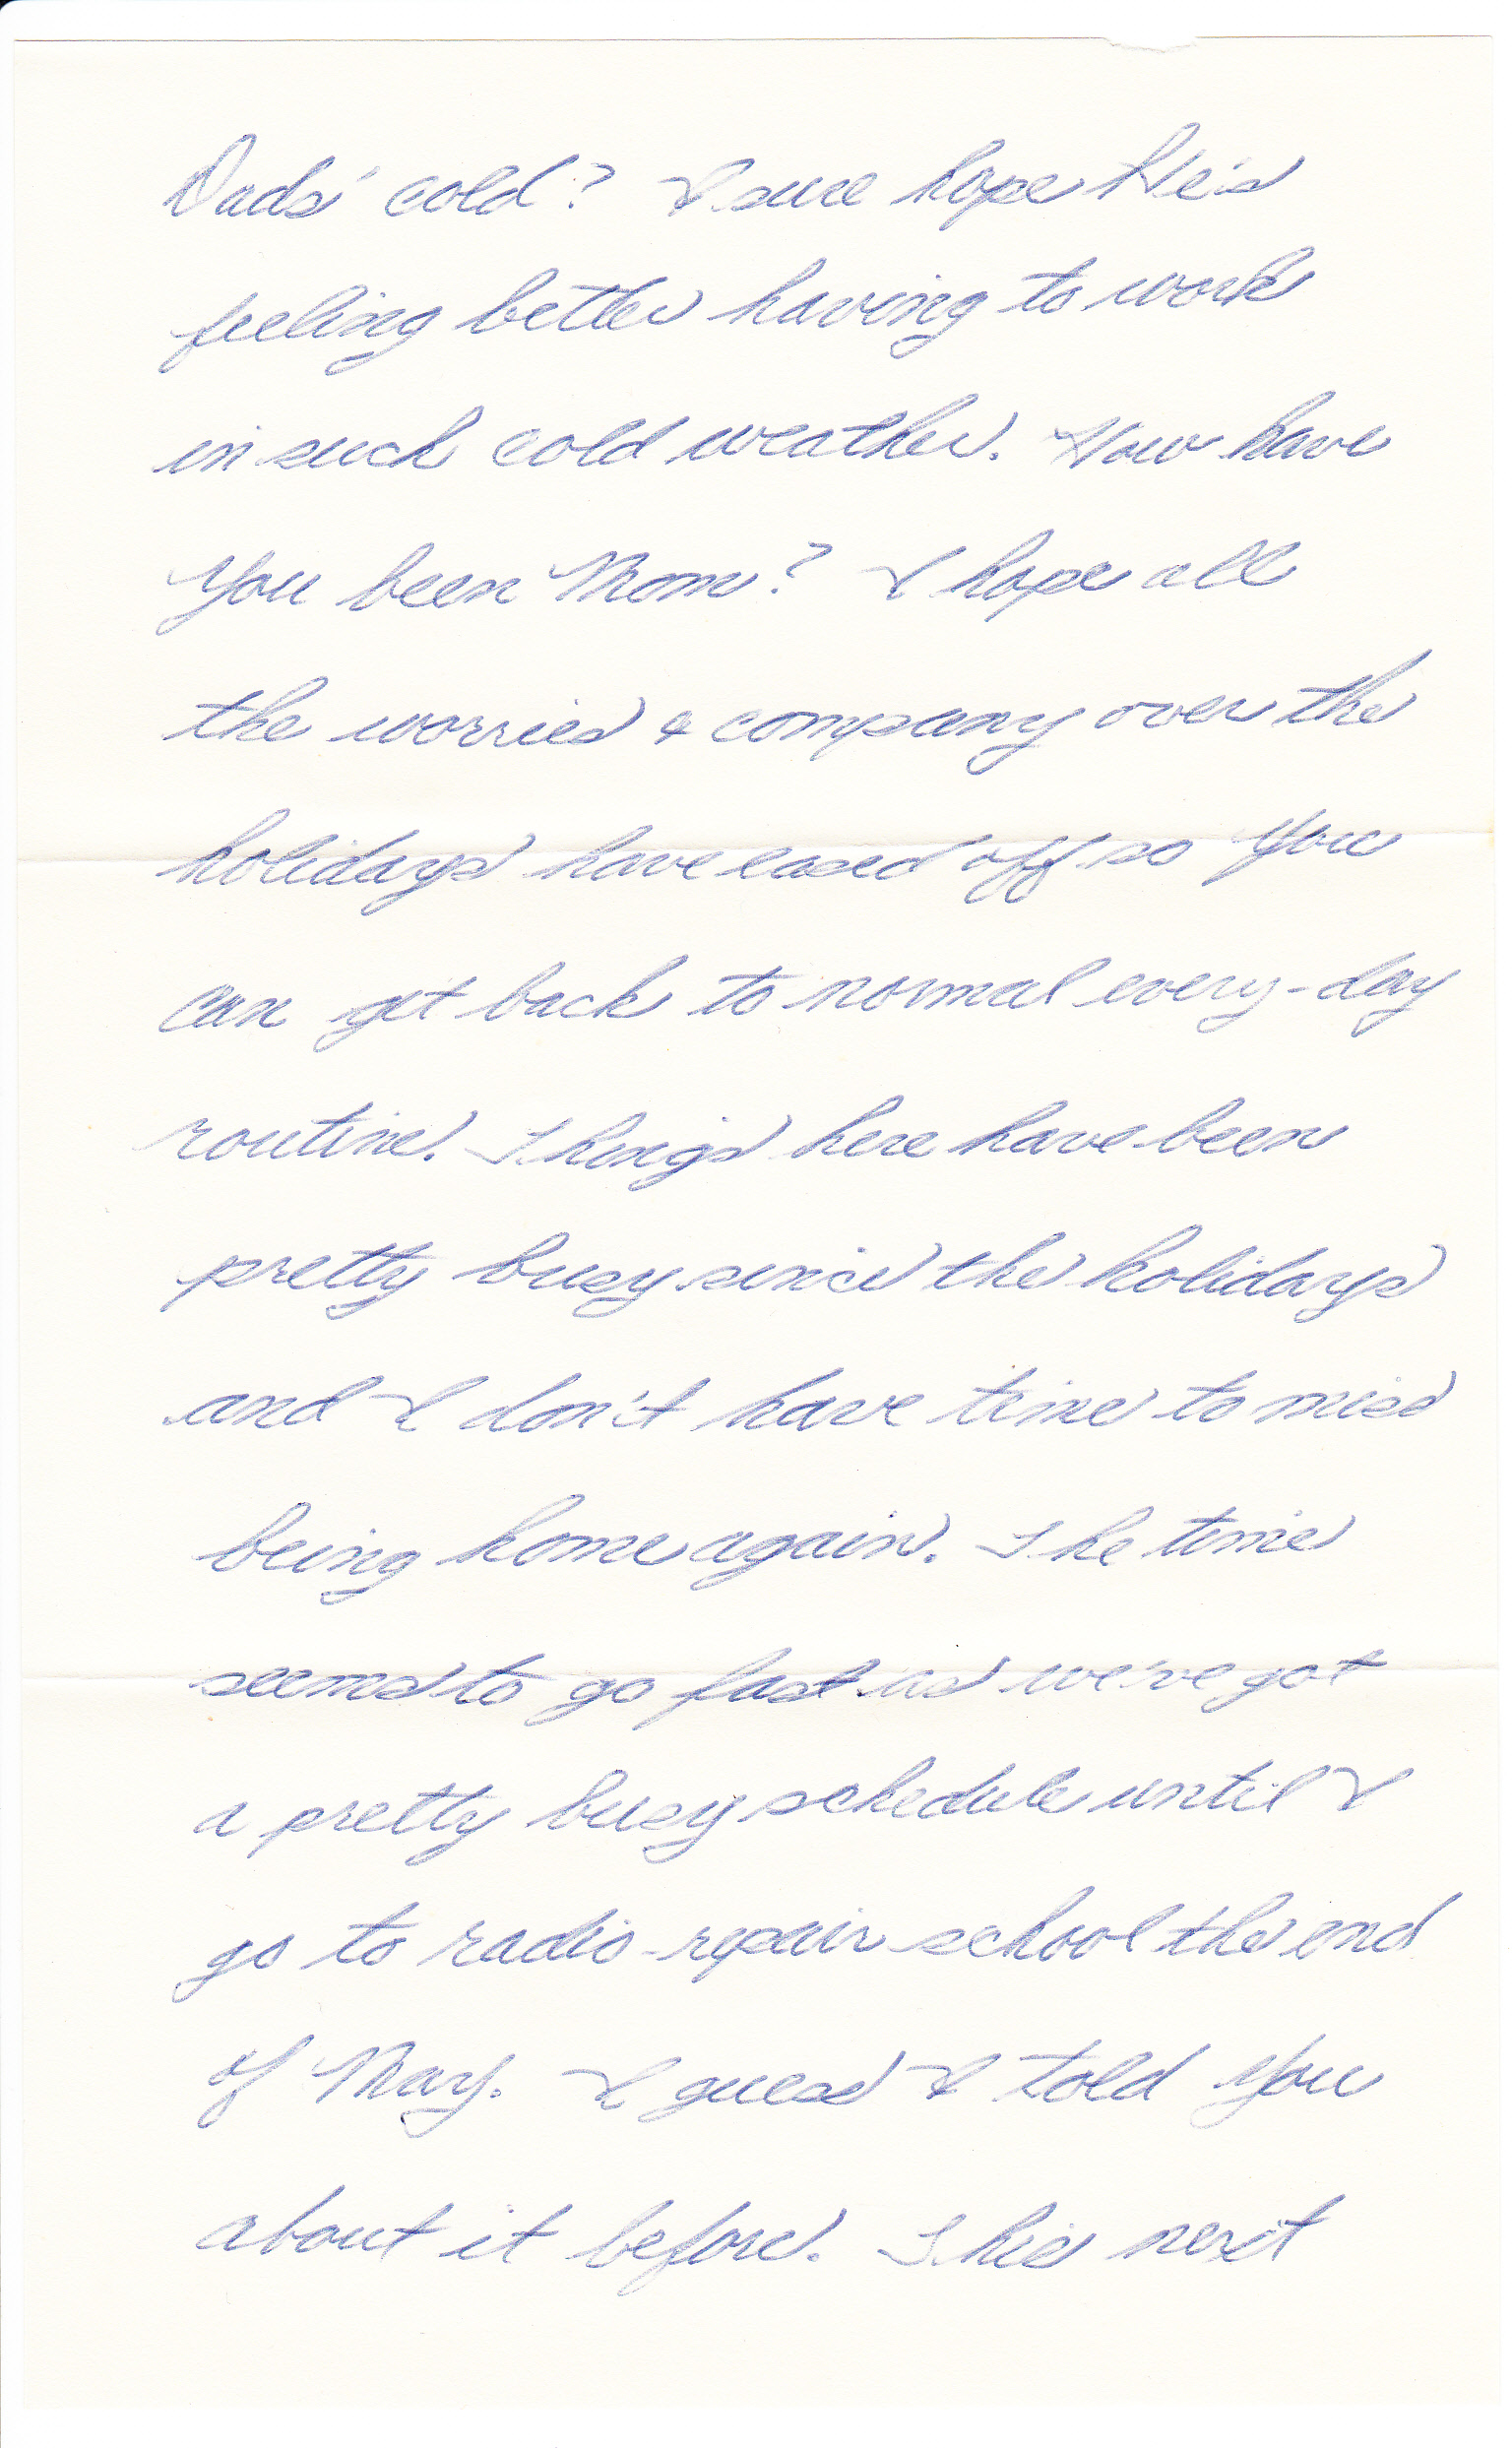 Dads' cold? I sure hope He's
feeling better having to work
in such cold weather. How have
you been Mom? I hope all
the worries & company over the
holidays have eased off so you
can get back to normal every-day
routine. Things here have been
pretty busy since the holidays
and I don't have time to miss
being home again. The time
seems to go fast as we've got
a pretty busy schedule until I
go to radio-repair school the end
of May. I guess I told you
about it before. This next